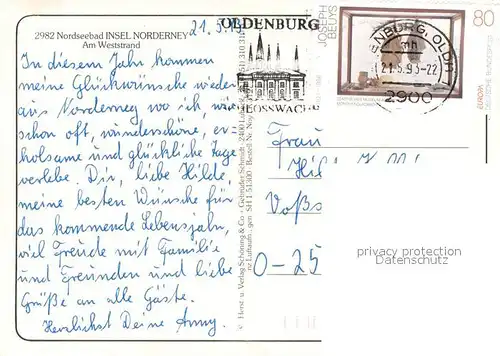 2982 Nordseebad INSEL NORDERNEY
Am Weststrand
21.5.93
In diesem Jahr kommen
meine Glückwünsche wieder
aus Norderney wo ich, wie
schon oft, wunderschöne, er-
holsame und glückliche Tage
verlebe. Dir, liebe Hilde,
meine besten Wünsche für
das kommende Lebensjahr,
viel Freude mit Familie
und Freunden und liebe
Grüße an alle Gäste.
Herzlichst Deine Anny.
© Horst u. Verlag Schöning & Co · Gebrüder Schmidt
OLDENBURG
HLOSSWACHE
JOSEPH
BEUYS
80
EUROPA
ENBURG, OLDB
mh
21.5.93-22
2900
Frau
Hil
Voßs
O-25
privacy protection
Datenschutz